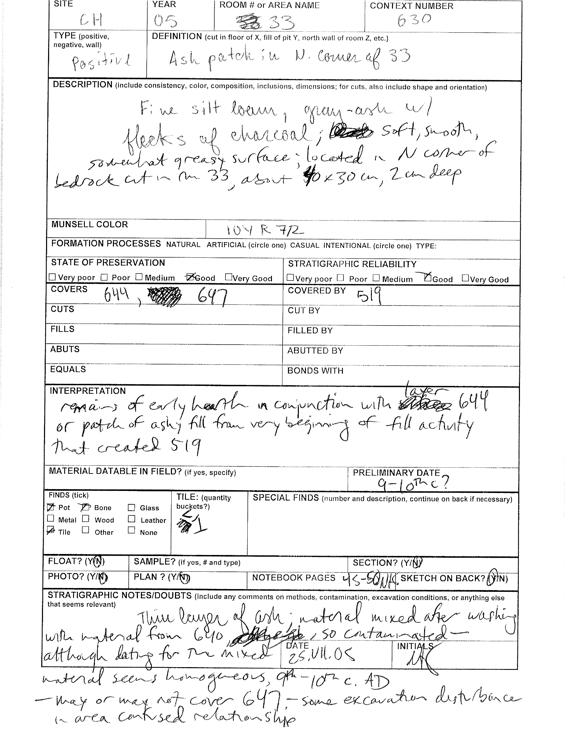 SITE YEAR ROOM # or AREA NAME CONTEXT NUMBER
CH 05 33 630
TYPE (positive, negative, wall) DEFINITION (cut in floor of X, fill of pit Y, north wall of room Z, etc.)
Positive Ash patch in N. corner of 33
DESCRIPTION (include consistency, color, composition, inclusions, dimensions; for cuts, also include shape and orientation)
Fine silt loam, gray-ash w/
flecks of charcoal; soft, smooth,
somewhat greasy surface; located in N corner of
bedrock cut in rm 33, about 40x30 cm, 2 cm deep
MUNSELL COLOR 10YR 7/2
FORMATION PROCESSES NATURAL ARTIFICIAL (circle one) CASUAL INTENTIONAL (circle one) TYPE:
STATE OF PRESERVATION STRATIGRAPHIC RELIABILITY
Very poor Poor Medium Good Very Good Very poor Poor Medium Good Very Good
COVERS 644, 647 COVERED BY 519
CUTS CUT BY
FILLS FILLED BY
ABUTS ABUTTED BY
EQUALS BONDS WITH
INTERPRETATION
remains of early hearth in conjunction with layer 644
or patch of ashy fill from very beginning of fill activity
that created 519
MATERIAL DATABLE IN FIELD? (if yes, specify) PRELIMINARY DATE
9-10th c?
FINDS (tick) TILE: (quantity buckets?) SPECIAL FINDS (number and description, continue on back if necessary)
Pot Bone Glass
Metal Wood Leather <1
Tile Other None
FLOAT? (Y/N) SAMPLE? (if yes, # and type) SECTION? (Y/N)
PHOTO? (Y/N) PLAN ? (Y/N) NOTEBOOK PAGES 45-50 SKETCH ON BACK? (Y/N)
STRATIGRAPHIC NOTES/DOUBTS (Include any comments on methods, contamination, excavation conditions, or anything else that seems relevant)
Thin layer of ash; material mixed after washing
with material from 640, so contaminated —
although dating for the mixed DATE 25.VII.05 INITIALS
material seems homogeneous, 9th-10th c. AD
— may or may not cover 647 - some excavation disturbance
in area confused relationship